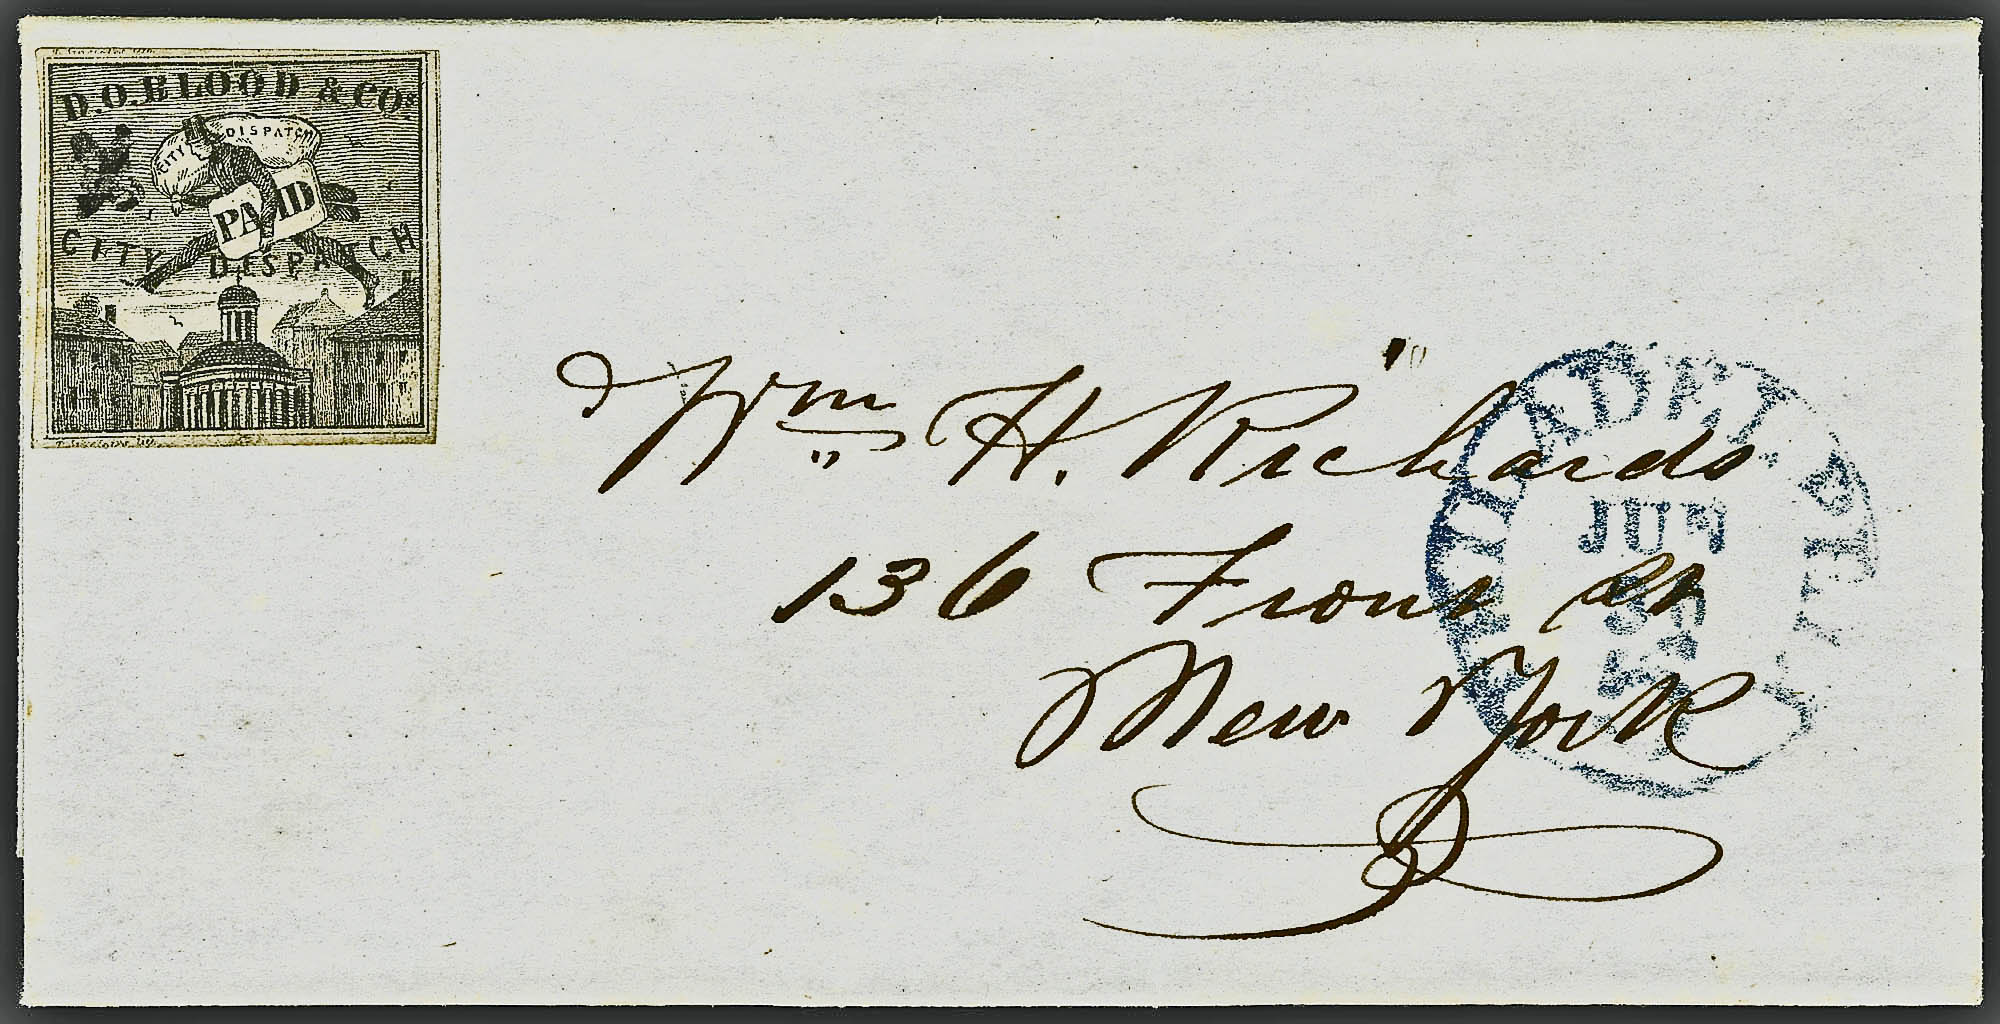 D.O. BLOOD & COs
CITY DISPATCH
PAID
CITY DISPATCH
Wm H. Richards
136 Front St
New York
PHILADELPHIA
JUN
30